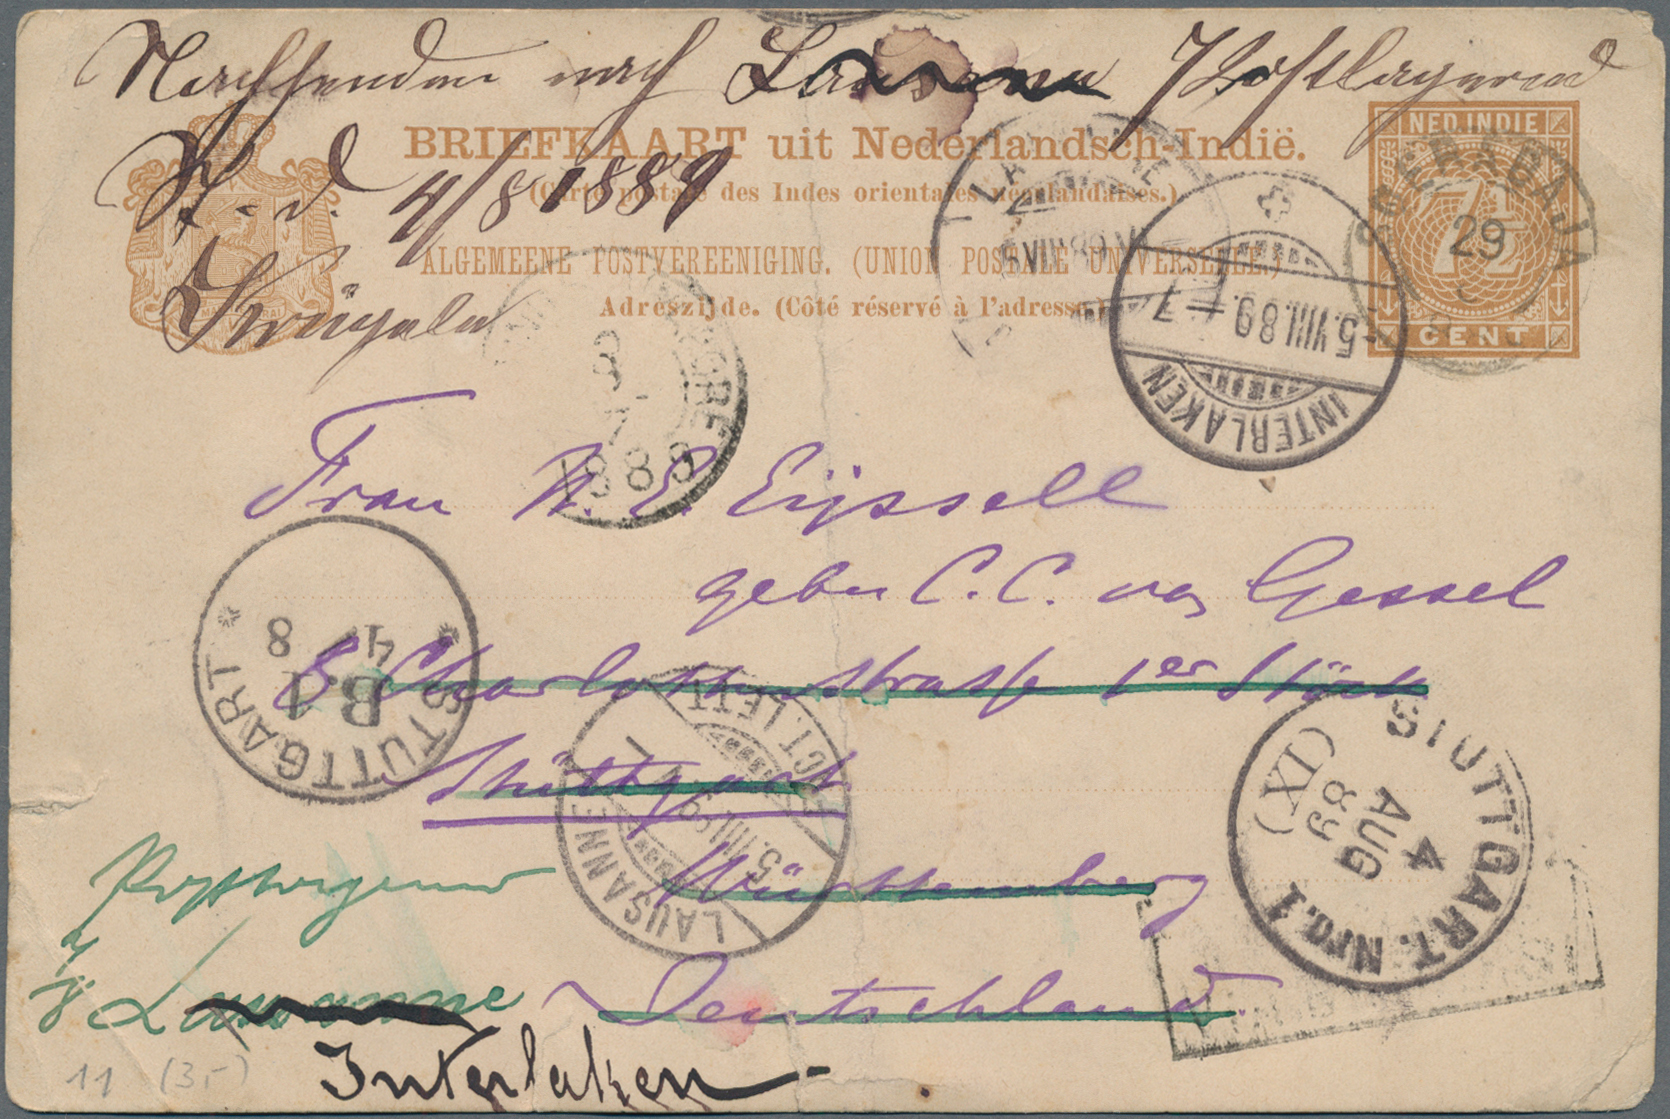 Nachsenden nach Lausanne Postlagernd
BRIEFKAART uit Nederlandsch-Indië.
(Carte postale des Indes orientales néerlandaises.)
4/8 1889
ALGEMEENE POSTVEREENIGING. (UNION POSTALE UNIVERSELLE.)
Adreszijde. (Côté réservé à l'adresse.)
NED. INDIE
7½
CENT
29
5.VIII.89.-7
INTERLAKEN
1889
Frau
Eijssell
C. C. van Gessel
8 Charlottenstrasse 1er Stock
Stuttgart
Württemberg
Deutschland.
STUTTGART
B1
4 8
LAUSANNE
5.VIII.89
LETT.
STUTTGART. Nro. 1
4
AUG
89
(IX)
Lausanne
Interlaken
11 (3,-)